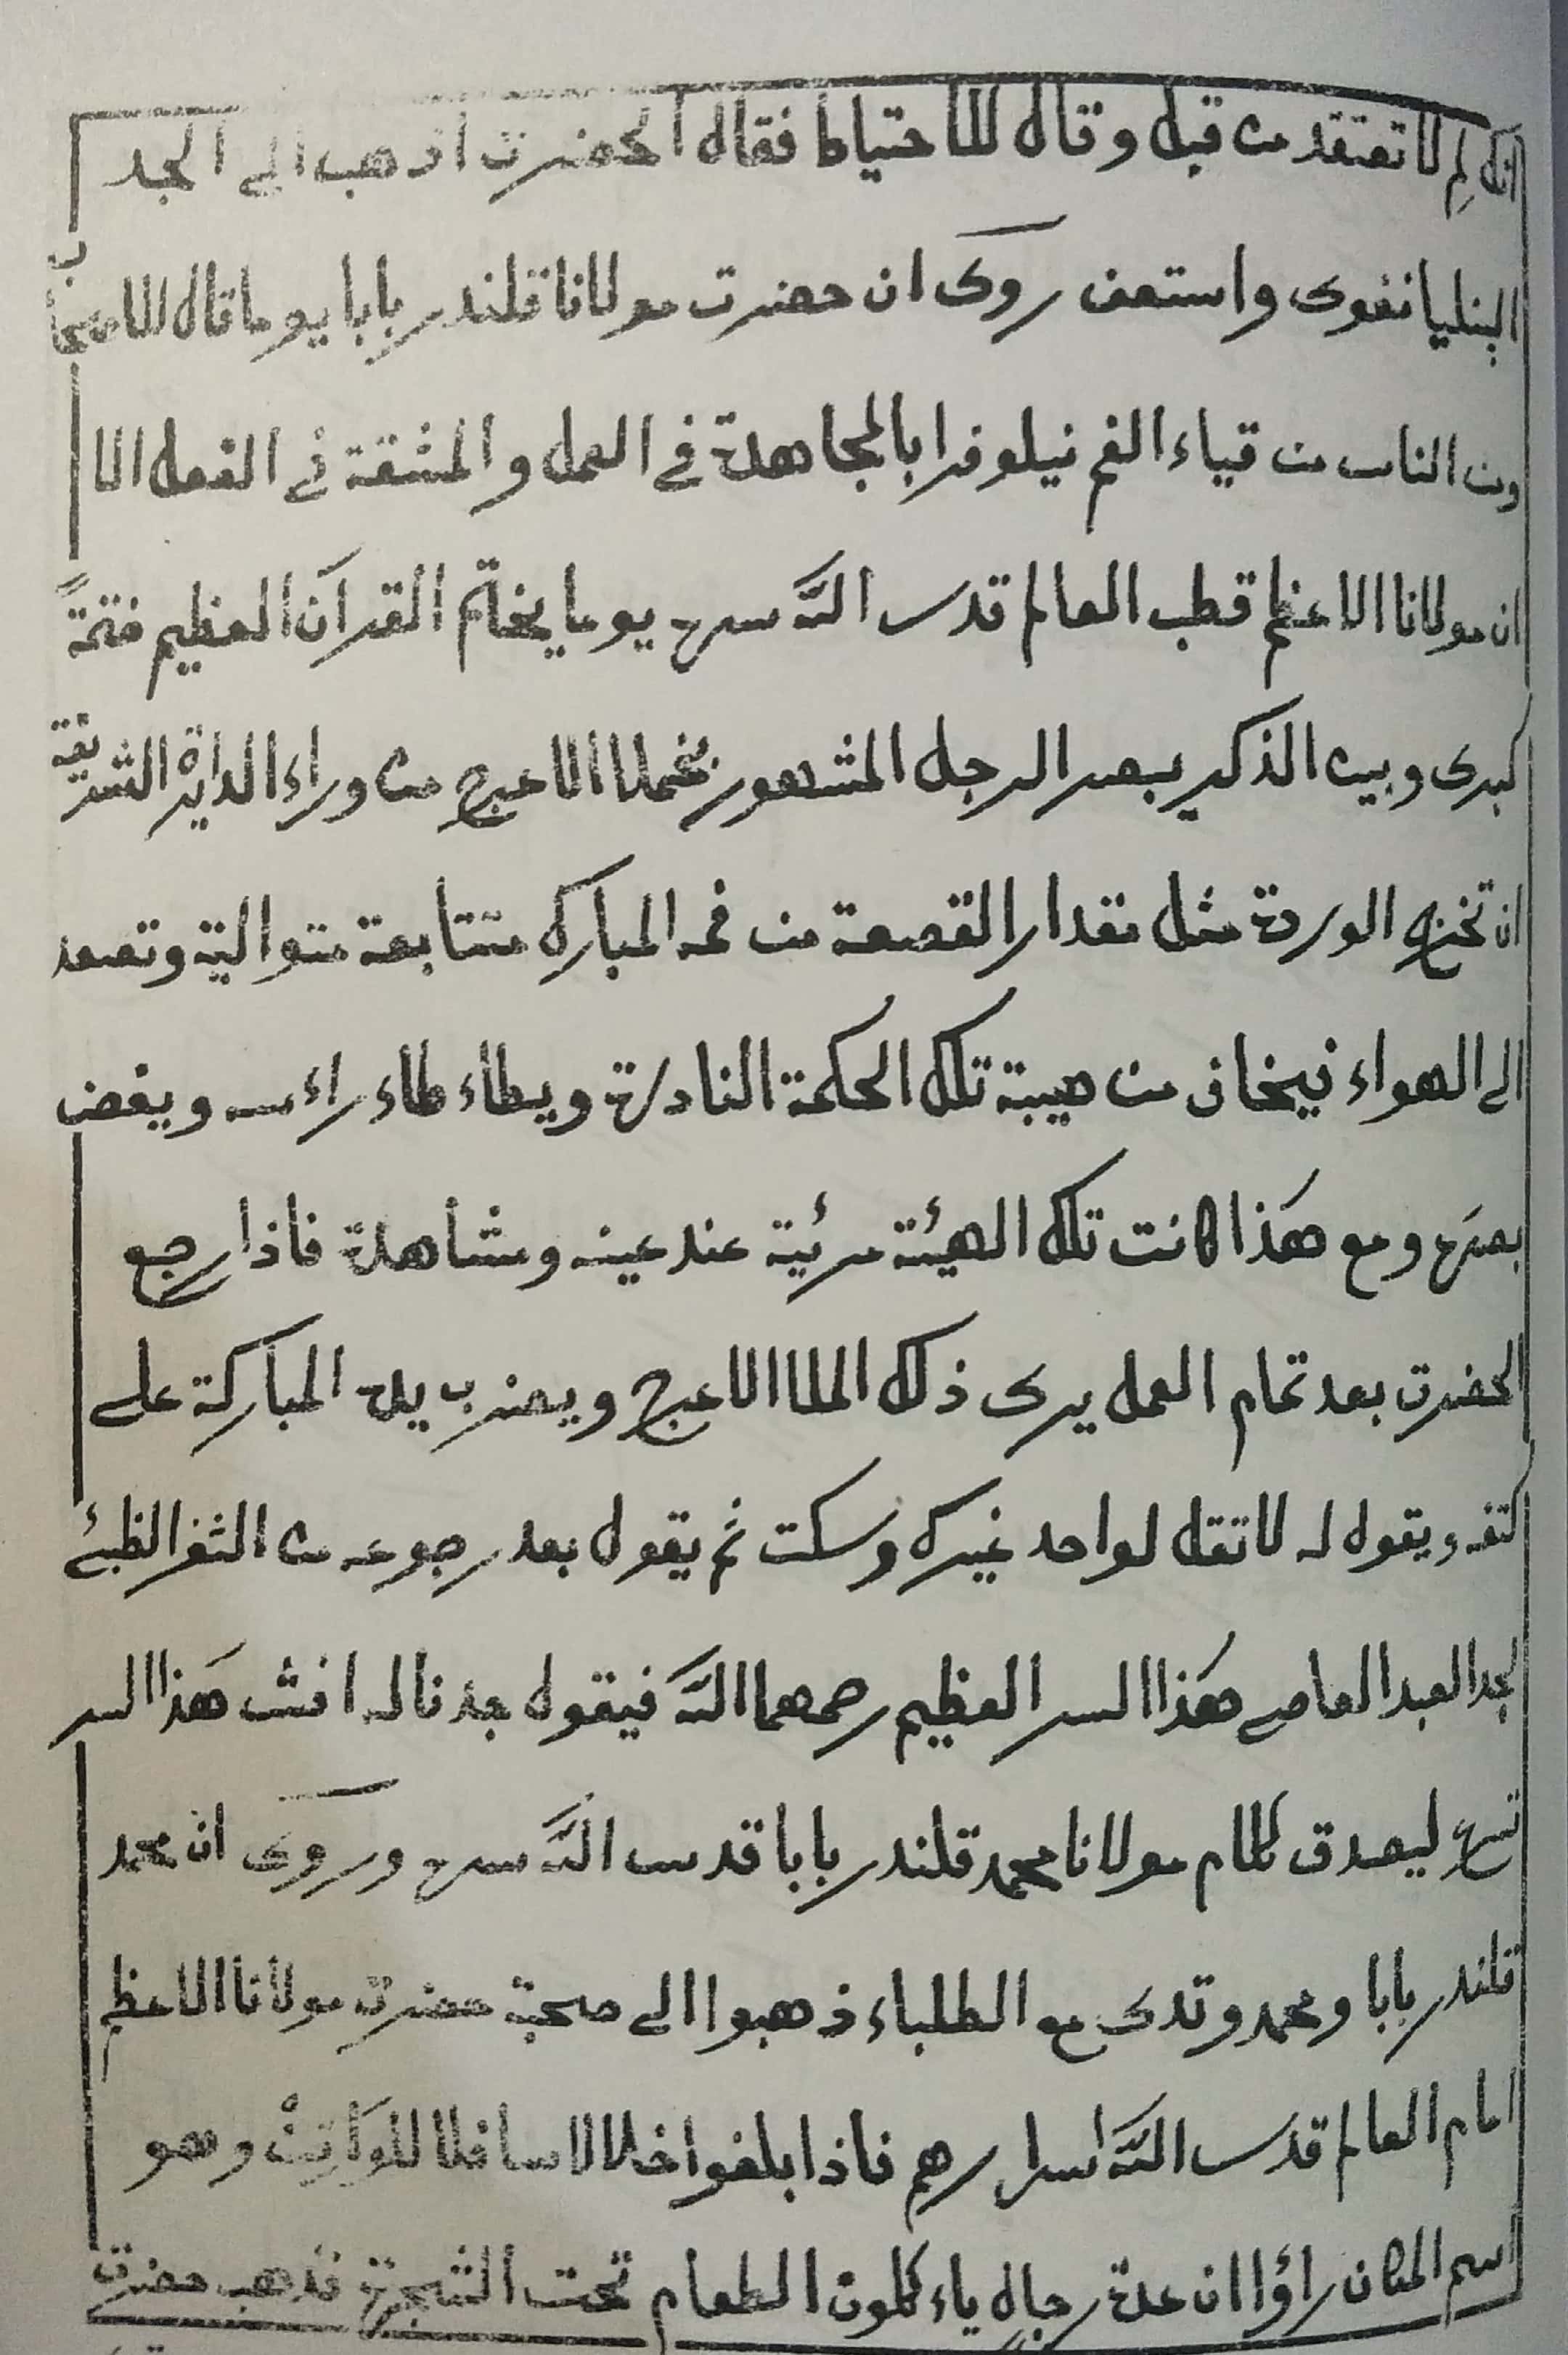 انك لم لا تعتقد من قبل وقال للاحتياط فقال الحضرت اذهب الى الجد
البنليانغوى واستعف روى ان حضرت مولانا قلندر بابا يوما قال للاصحاب
ومن الناس من قياء الفم نيلوفرا بالمجاهدة فى العمل والمشقة فى الفعل الا
ان مولانا الاعظم قطب العالم قدس الله سره يوما يختم القرآن العظيم ختمةً
كبرى وبين الذكر يبصر الرجل المشهور بخملا الاعرج من وراء الدايرة الشريفة
ان تخرج الوردة مثل مقدار القصعة من فمه المبارك متتابعة متوالية وتصعد
الى الهواء فيخاف من هيبة تلك الحكمة النادرة ويطأء طاء راءسه ويغض
بصره ومع هذا كانت تلك الهيئة مرئية عند عينه ومشاهدة فاذا رجع
الحضرت بعد تمام العمل يرى ذلك الملا الاعرج ويضرب يده المباركة على
كتفه ويقول له لا تقل لواحد غيرك وسكت ثم يقول بعد رجوعه من الثغر
لجد العبد العاصى هذا السر العظيم رحمهما الله فيقول جدنا له افش هذا السر
ليصدق كلام مولانا محمد قلندر بابا قدس الله سره وروى ان محمد
قلندر بابا ومحمد وتدى مع الطلباء ذهبوا الى صحبة حضرت مولانا الاعظم
امام العالم قدس الله اسرارهم فاذا بلغوا وهو
اسم المكان راؤا ان عدة رجال ياءكلون الطعام تحت الشجرة فذهب حضرت